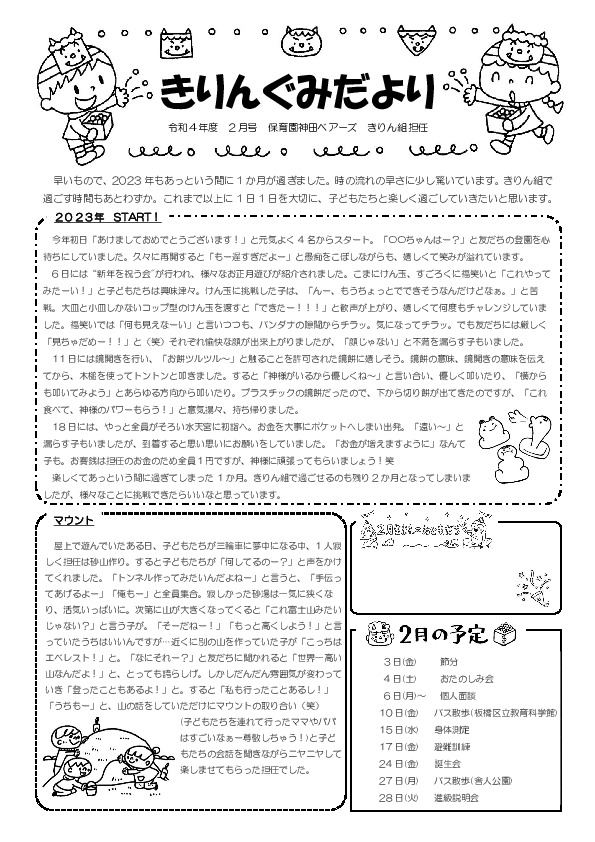 きりんぐみだより
令和４年度　２月号　保育園神田ベアーズ　きりん組担任
早いもので、2023年もあっという間に１か月が過ぎました。時の流れの早さに少し驚いています。きりん組で
過ごす時間もあとわずか。これまで以上に１日１日を大切に、子どもたちと楽しく過ごしていきたいと思います。
２０２３年　START！
今年初日「あけましておめでとうございます！」と元気よく４名からスタート。「〇〇ちゃんはー？」と友だちの登園を心
待ちにしていました。久々に再開すると「もー遅すぎだよー」と愚痴をこぼしながらも、嬉しくて笑みが溢れています。
６日には“新年を祝う会”が行われ、様々なお正月遊びが紹介されました。こまにけん玉、すごろくに福笑いと「これやって
みたーい！」と子どもたちは興味津々。けん玉に挑戦した子は、「んー、もうちょっとでできそうなんだけどなぁ。」と苦
戦。大皿と小皿しかないコップ型のけん玉を渡すと「できたー！！！」と歓声が上がり、嬉しくて何度もチャレンジしていま
した。福笑いでは「何も見えなーい」と言いつつも、バンダナの隙間からチラッ。気になってチラッ。でも友だちには厳しく
「見ちゃだめー！！」と（笑）それぞれ愉快な顔が出来上がりましたが、「顔じゃない」と不満を漏らす子もいました。
１１日には鏡開きを行い、「お餅ツルツル～」と触ることを許可された鏡餅に嬉しそう。鏡餅の意味、鏡開きの意味を伝え
てから、木槌を使ってトントンと叩きました。すると「神様がいるから優しくね～」と言い合い、優しく叩いたり、「横から
も叩いてみよう」とあらゆる方向から叩いたり。プラスチックの鏡餅だったので、下から切り餅が出てきたのですが、「これ
食べて、神様のパワーもらう！」と意気揚々、持ち帰りました。
１８日には、やっと全員がそろい水天宮に初詣へ。お金を大事にポケットへしまい出発。「遠い～」と
漏らす子もいましたが、到着すると思い思いにお願いをしていました。「お金が増えますように」なんて
子も。お賽銭は担任のお金のため全員１円ですが、神様に頑張ってもらいましょう！笑
楽しくてあっという間に過ぎてしまった１か月。きりん組で過ごせるのも残り２か月となってしまいま
したが、様々なことに挑戦できたらいいなと思っています。
マウント
屋上で遊んでいたある日、子どもたちが三輪車に夢中になる中、１人寂
しく担任は砂山作り。すると子どもたちが「何してるのー？」と声をかけ
てくれました。「トンネル作ってみたいんだよねー」と言うと、「手伝っ
てあげるよー」「俺もー」と全員集合。寂しかった砂場は一気に狭くな
り、活気いっぱいに。次第に山が大きくなってくると「これ富士山みたい
じゃない？」と言う子が。「そーだねー！」「もっと高くしよう！」と言
っていたうちはいいんですが…近くに別の山を作っていた子が「こっちは
エベレスト！」と。「なにそれー？」と友だちに聞かれると「世界一高い
山なんだよ！」と、とっても誇らしげ。しかしだんだん雰囲気が変わって
いき「登ったこともあるよ！」と。すると「私も行ったことあるし！」
「うちもー」と、山の話をしていただけにマウントの取り合い（笑）
（子どもたちを連れて行ったママやパパ
はすごいなぁー尊敬しちゃう！）と子ど
もたちの会話を聞きながらニヤニヤして
楽しませてもらった担任でした。
２月の予定
３日（金）　節分
４日（土）　おたのしみ会
６日（月）～　個人面談
１０日（金）　バス散歩（板橋区立教育科学館）
１５日（水）　身体測定
１７日（金）　避難訓練
２４日（金）　誕生会
２７日（月）　バス散歩（舎人公園）
２８日（火）　進級説明会